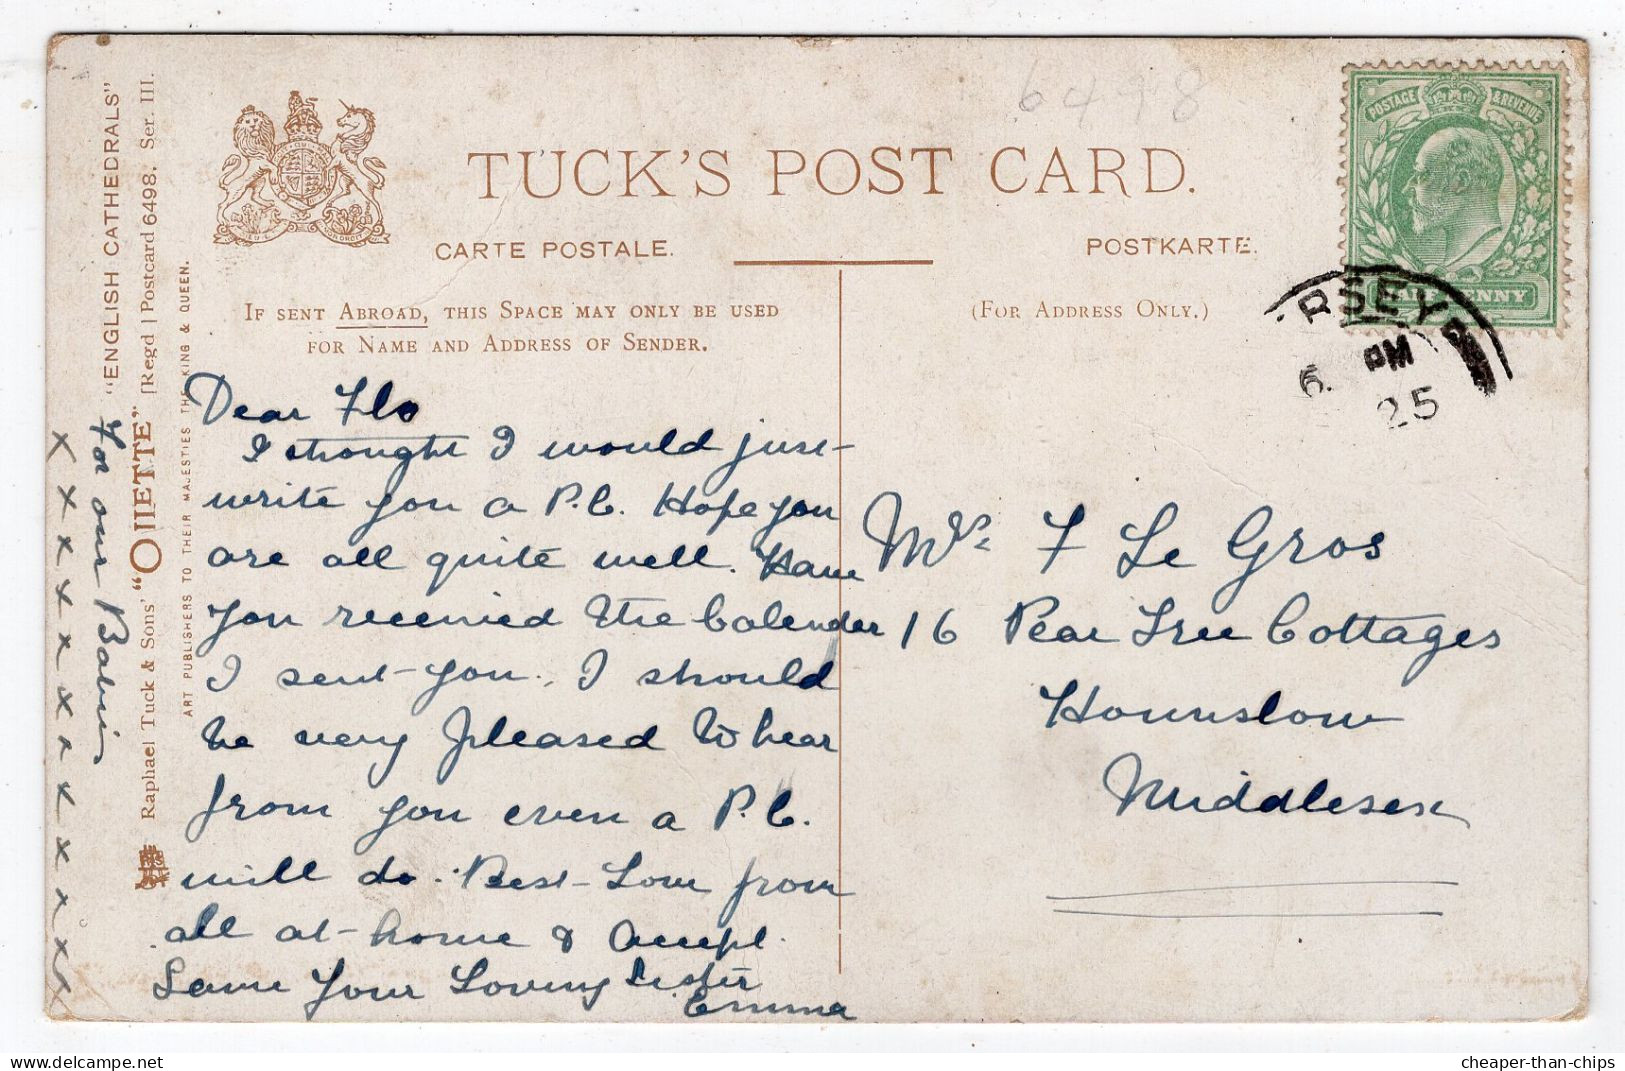 6498
TUCK'S POST CARD.
CARTE POSTALE.
POSTKARTE.
IF SENT ABROAD, THIS SPACE MAY ONLY BE USED
FOR NAME AND ADDRESS OF SENDER.
(FOR ADDRESS ONLY.)
POSTAGE & REVENUE
HALF PENNY
RSEY
6. PM
25
Dear Flo
I thought I would just
write you a P.C. Hope you
are all quite well. Have
you received the Calender
I sent you, I should
be very pleased to hear
from you even a P.C.
will do. Best Love from
all at home & Accept
Same Your Loving Sister
Emma
Mrs F Le Gros
16 Pear Tree Cottages
Hounslow
Middlesex
"ENGLISH CATHEDRALS"
Raphael Tuck & Sons' "OILETTE" [Regd] Postcard 6498. Ser. III.
ART PUBLISHERS TO THEIR MAJESTIES THE KING & QUEEN.
For our Babies
x x x x x x x x x x x
cheaper-than-chips